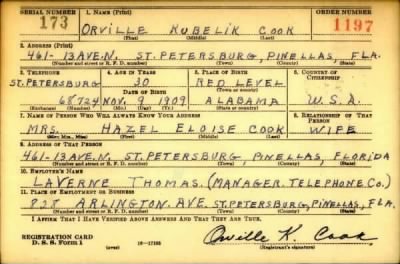 SERIAL NUMBER 1. NAME (Print) ORDER NUMBER
173 ORVILLE KUBELIK COOK 1197
(First) (Middle) (Last)
2. ADDRESS (Print)
461-13 AVE.N. ST. PETERSBURG, PINELLAS, FLA.
(Number and street or R. F. D. number) (Town) (County) (State)
3. TELEPHONE 4. AGE IN YEARS 5. PLACE OF BIRTH 6. COUNTRY OF CITIZENSHIP
ST. PETERSBURG 30 RED LEVEL
DATE OF BIRTH (Town or county)
68724 NOV. 9, 1909 ALABAMA U.S.A.
(Exchange) (Number) (Mo.) (Day) (Yr.) (State or country)
7. NAME OF PERSON WHO WILL ALWAYS KNOW YOUR ADDRESS 8. RELATIONSHIP OF THAT PERSON
MRS. HAZEL ELOISE COOK WIFE
(Mr.; Mrs.; Miss) (First) (Middle) (Last)
9. ADDRESS OF THAT PERSON
461-13 AVE.N. ST. PETERSBURG, PINELLAS, FLORIDA
(Number and street or R. F. D. number) (Town) (County) (State)
10. EMPLOYER'S NAME
LAVERNE THOMAS. (MANAGER. TELEPHONE CO.)
11. PLACE OF EMPLOYMENT OR BUSINESS
828 ARLINGTON AVE ST. PETERSBURG, PINELLAS, FLA.
(Number and street or R. F. D. number) (Town) (County) (State)
I AFFIRM THAT I HAVE VERIFIED ABOVE ANSWERS AND THAT THEY ARE TRUE.
REGISTRATION CARD
D. S. S. Form 1 (over) 16-17105 Orville K. Cook
(Registrant's signature)